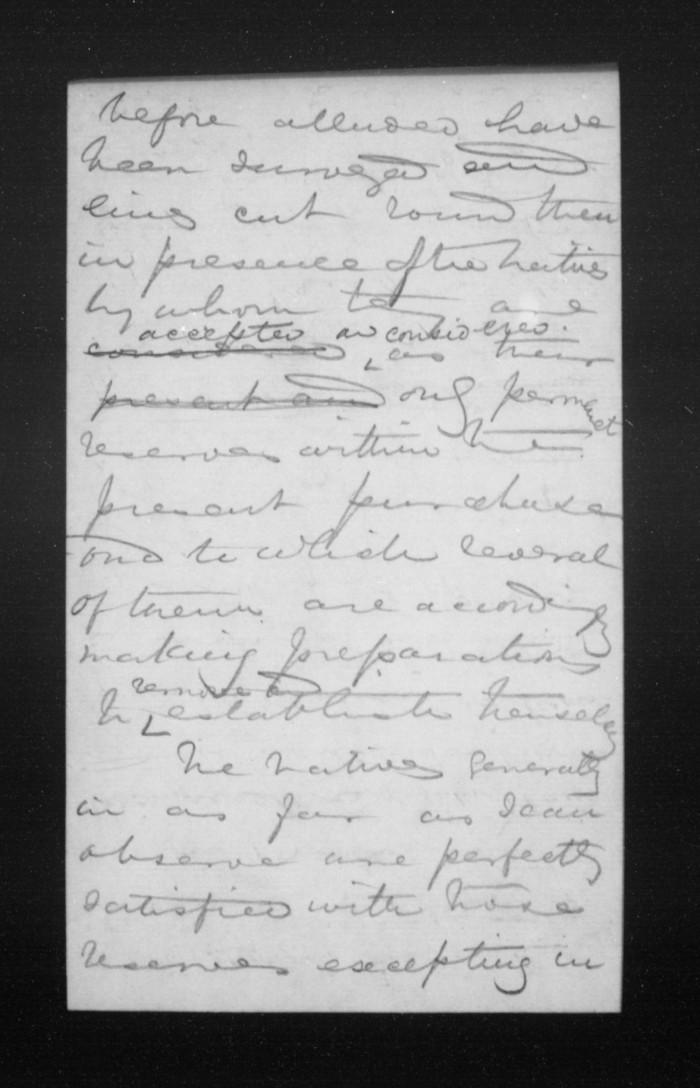 before alluded have
been surveyed and
lines cut round them
in presence of the natives
by whom they are
accepted and considered
considered as their
present and only permanent
reserves within the
present purchase
and to which several
of them are accordingly
making preparations
remove and
to establish themselves
The natives generally
in as far as I can
observe are perfectly
satisfied with those
reserves excepting in